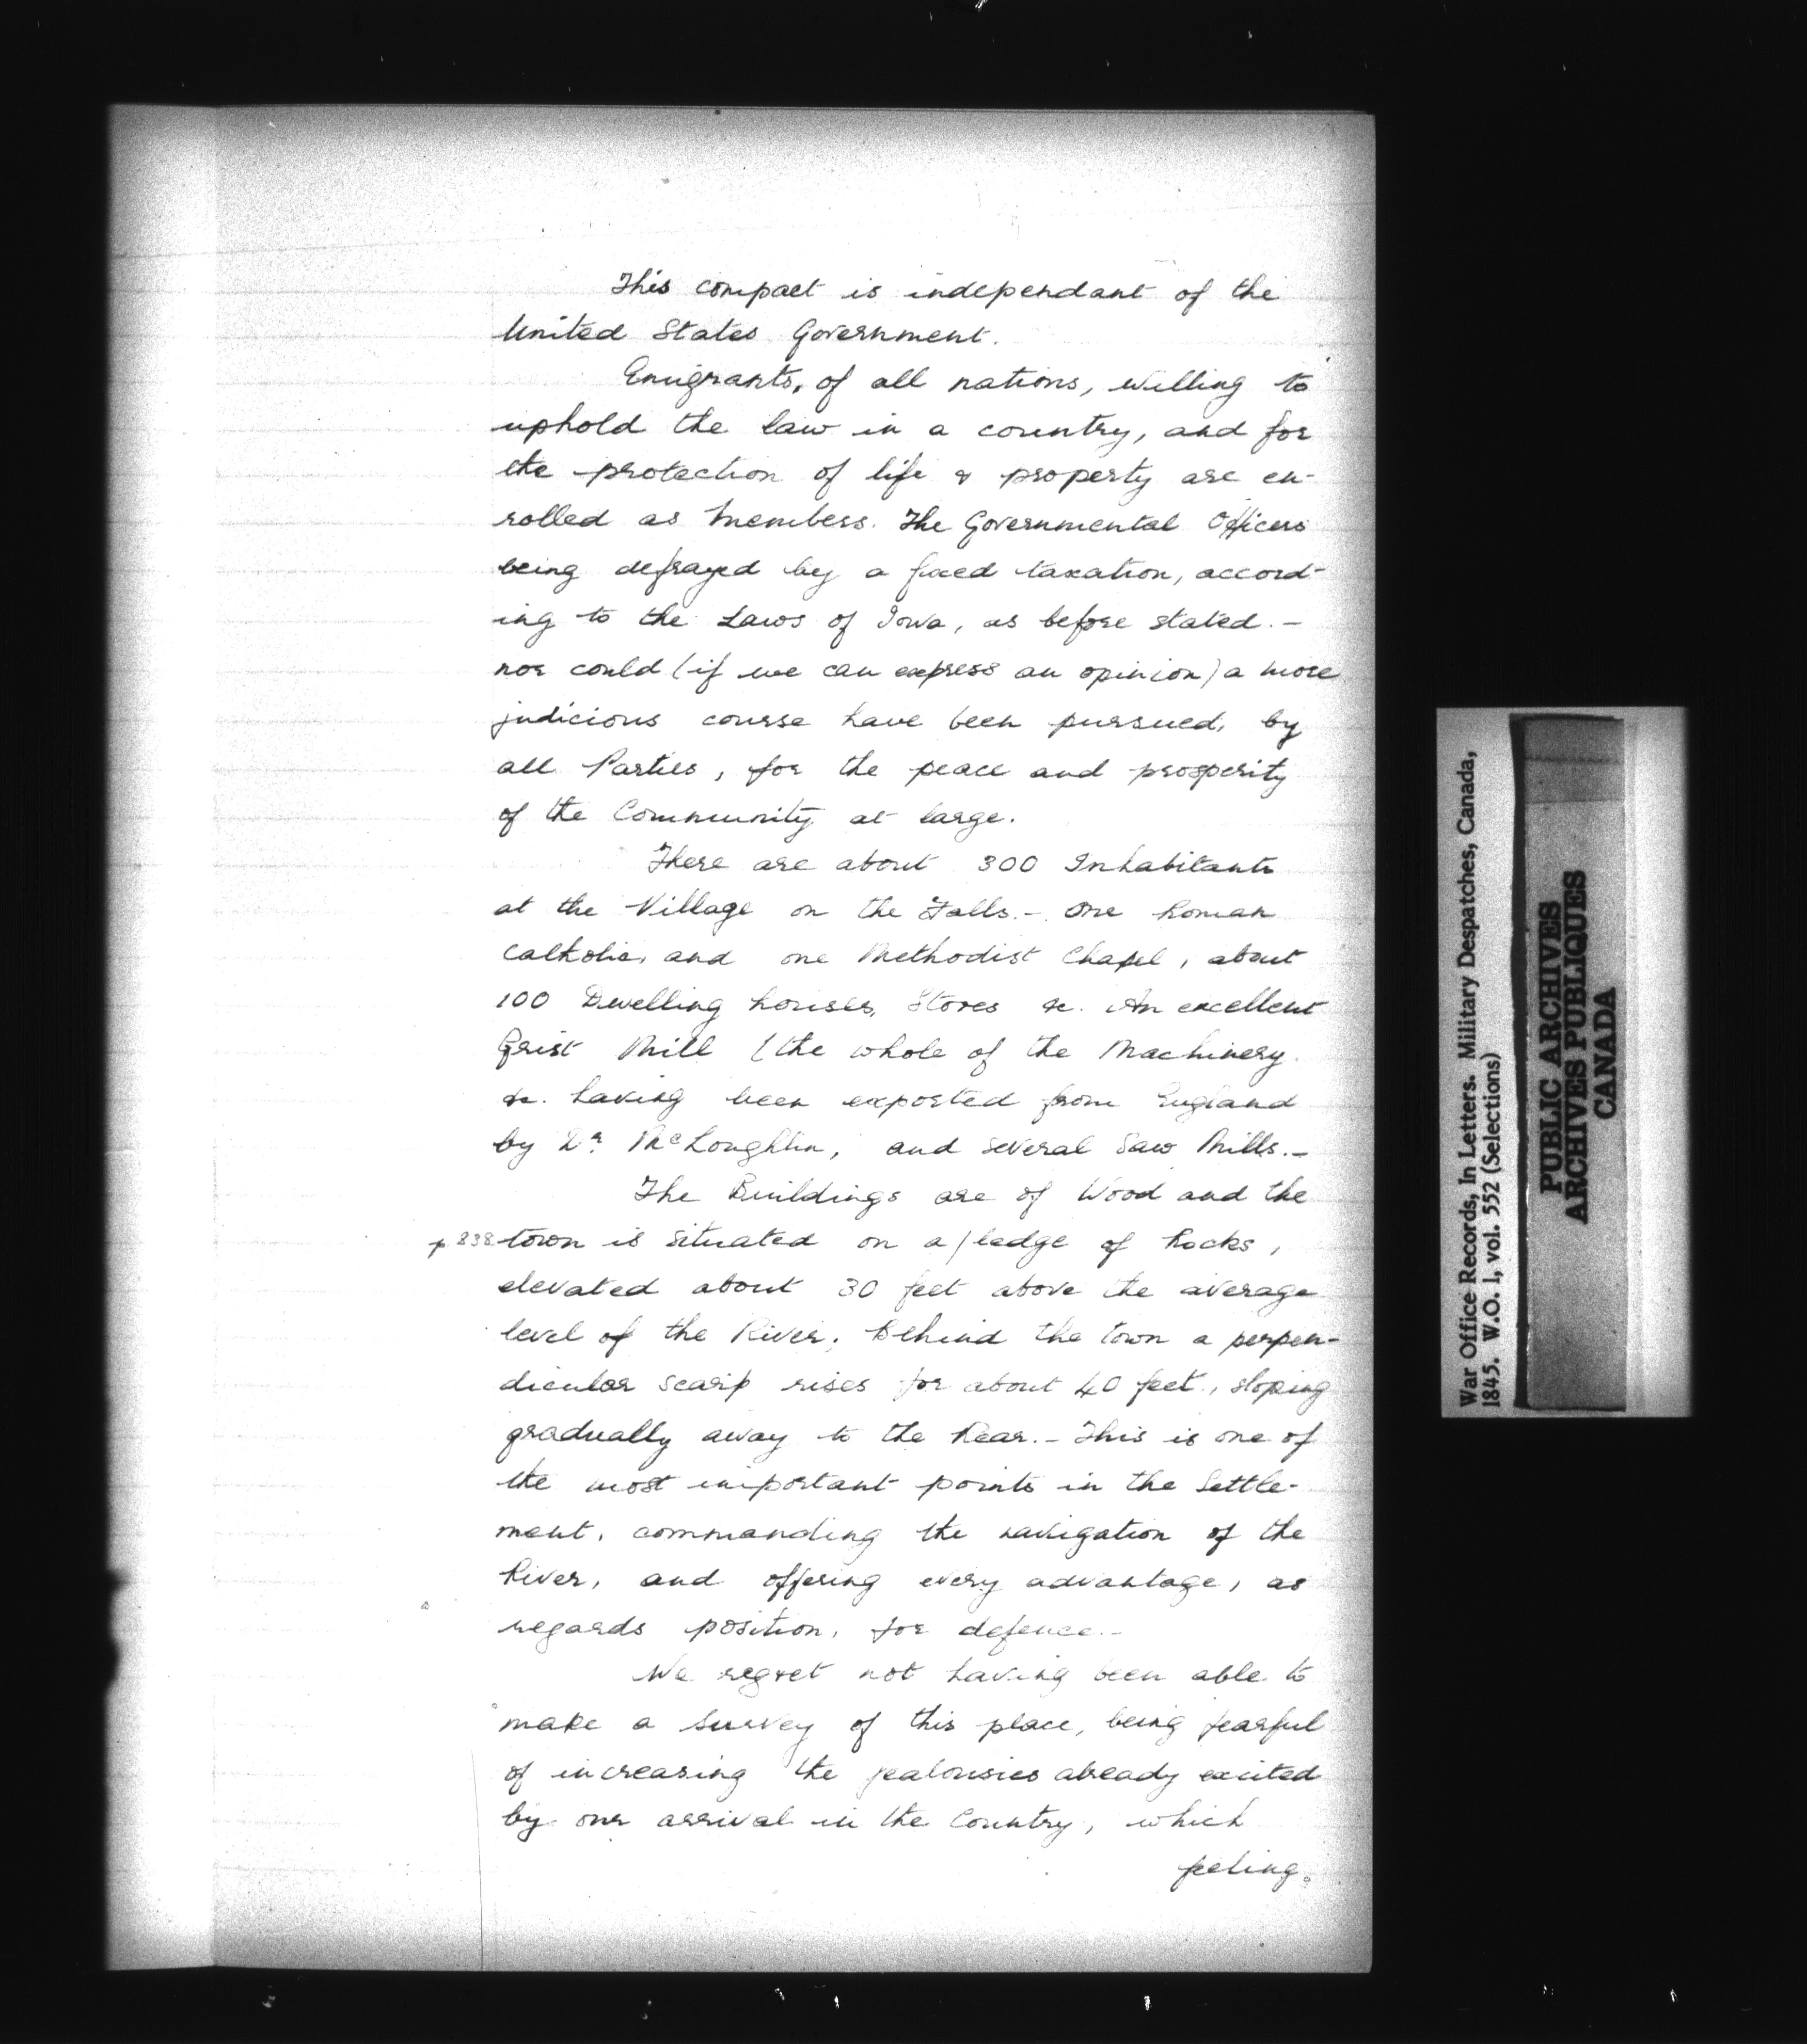 This compact is independant of the
United States Government.
Emigrants, of all nations, willing to
uphold the law in a country, and for
the protection of life & property are en-
rolled as Members. The Governmental Officers
being defrayed by a fixed taxation, accord-
ing to the Laws of Iowa, as before stated. -
nor could (if we can express an opinion) a more
judicious course have been pursued, by
all Parties, for the peace and prosperity
of the Community at large.
There are about 300 Inhabitants
at the Village on the Falls. - One Roman
Catholic, and one Methodist Chapel, about
100 Dwelling houses, Stores &c. An excellent
Grist Mill (the whole of the Machinery
&c. having been exported from England
by Dr. McLoughlin, and several Saw Mills. -
The Buildings are of Wood and the
p 838 town is situated on a / ledge of Rocks,
elevated about 30 feet above the average
level of the River; Behind the town a perpen-
dicular scarp rises for about 40 feet, sloping
gradually away to the Rear. - This is one of
the most important points in the Settle-
ment, commanding the navigation of the
River, and offering every advantage, as
regards position, for defence. -
We regret not having been able to
make a Survey of this place, being fearful
of increasing the jealousies already excited
by our arrival in the Country, which
feeling
War Office Records, In Letters. Military Despatches, Canada,
1845. W.O. 1, vol. 552 (Selections)
PUBLIC ARCHIVES
ARCHIVES PUBLIQUES
CANADA